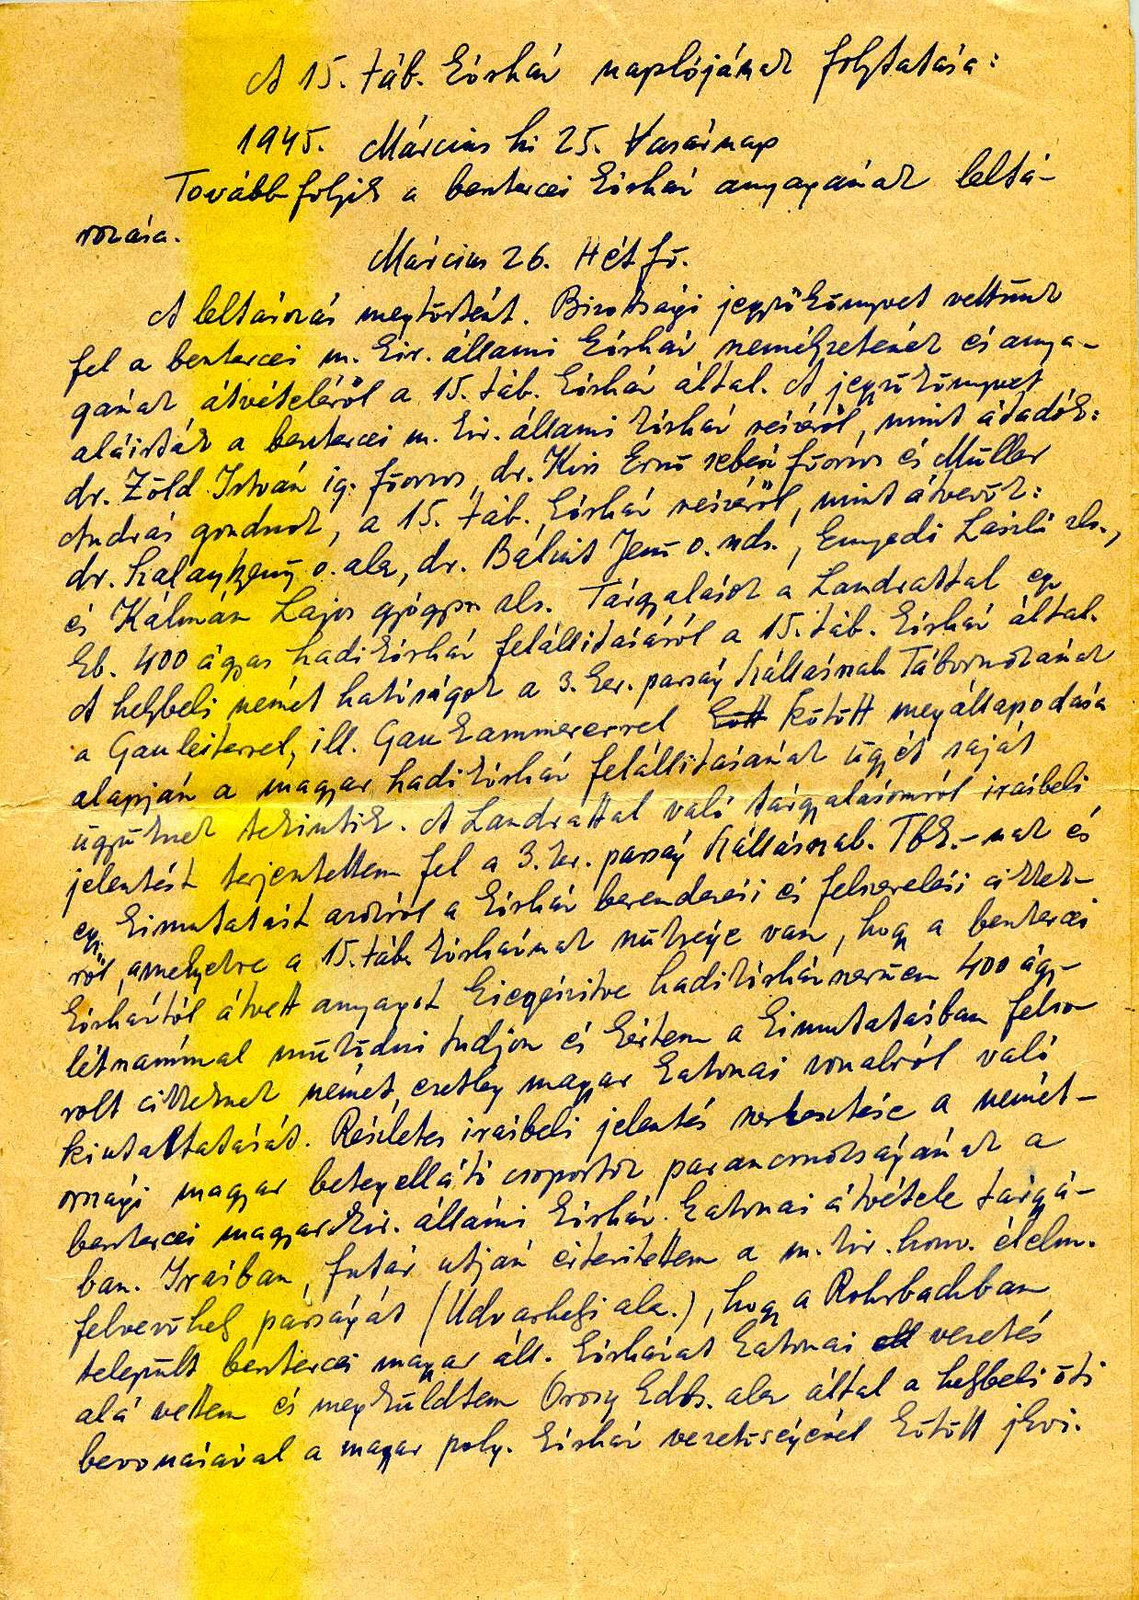 A 15. táb. kórház naplójának folytatása:
1945. Március hi 25. Vasárnap
Tovább folyik a beszterczei kórház anyagának leltá-
rozása.
Március 26. Hétfő.
A leltározás megtörtént. Bizottsági jegyzőkönyvet vettünk
fel a beszterczei m. kir. állami kórház személyzetének és anya-
gának átvételéről a 15. táb. kórház által. A jegyzőkönyvet
aláirták a beszterczei m. kir. állami kórház részéről, mint átadók:
dr. Zöld István ig. főorvos, dr. Kiss Ernő sebész főorvos és Müller
András gondnok, a 15. táb. kórház részéről, mint átvevők:
dr. o. alez, dr. Bálint Jenő o. szds., Enyedi László zls.,
és Kálmán Lajos gyógysz zls. Tárgyalások a Landrattal egy
kb. 400 ágyas hadikórház felállitásáról a 15. táb. kórház által.
A helybeli német hatóságok a 3. ker. parság Szállásmab Táborszkának
a Gauleiterrel, ill. Gaukammererrel kött kötött megállapodása
alapján a magyar hadikórház felállitásának ügyét saját
ügyüknek tekintik. A Landrattal való tárgyalásomról irásbeli
jelentést terjesztettem fel a 3. ker. parság Szállásmab. Tbk.-nak és
egy kimutatást azokról a kórház berendezési és felszerelési cikkek-
ről, amelyekre a 15. táb. kórháznak szüksége van, hogy a beszterczei
kórháztól átvett anyagot kiegészitve hadikórházszerüen 400 ágy-
létszámmal müködni tudjon és kértem a kimutatásban felso-
rolt cikkeknek német, esetleg magyar katonai vonalról való
kiutaltatását. Részletes irásbeli jelentés szerkesztése a német-
országi magyar betegellátó csoportok parancsnokságának a
beszterczei magyar kir. állami kórház katonai átvétele tárgyá-
ban. Irásban, futár utján értesitettem a m. kir. honv. élelm.
felvevőhely parságát (Udvarhelyi alez.), hogy a Rohrbachban
települt beszterczei magyar áll. kórházat katonai ell vezetés
alá vettem és megküldtem Orosz Edbs. alez által a helybeli öti
bevonásával a magyar polg. kórház vezetőségével kötött jkvi.